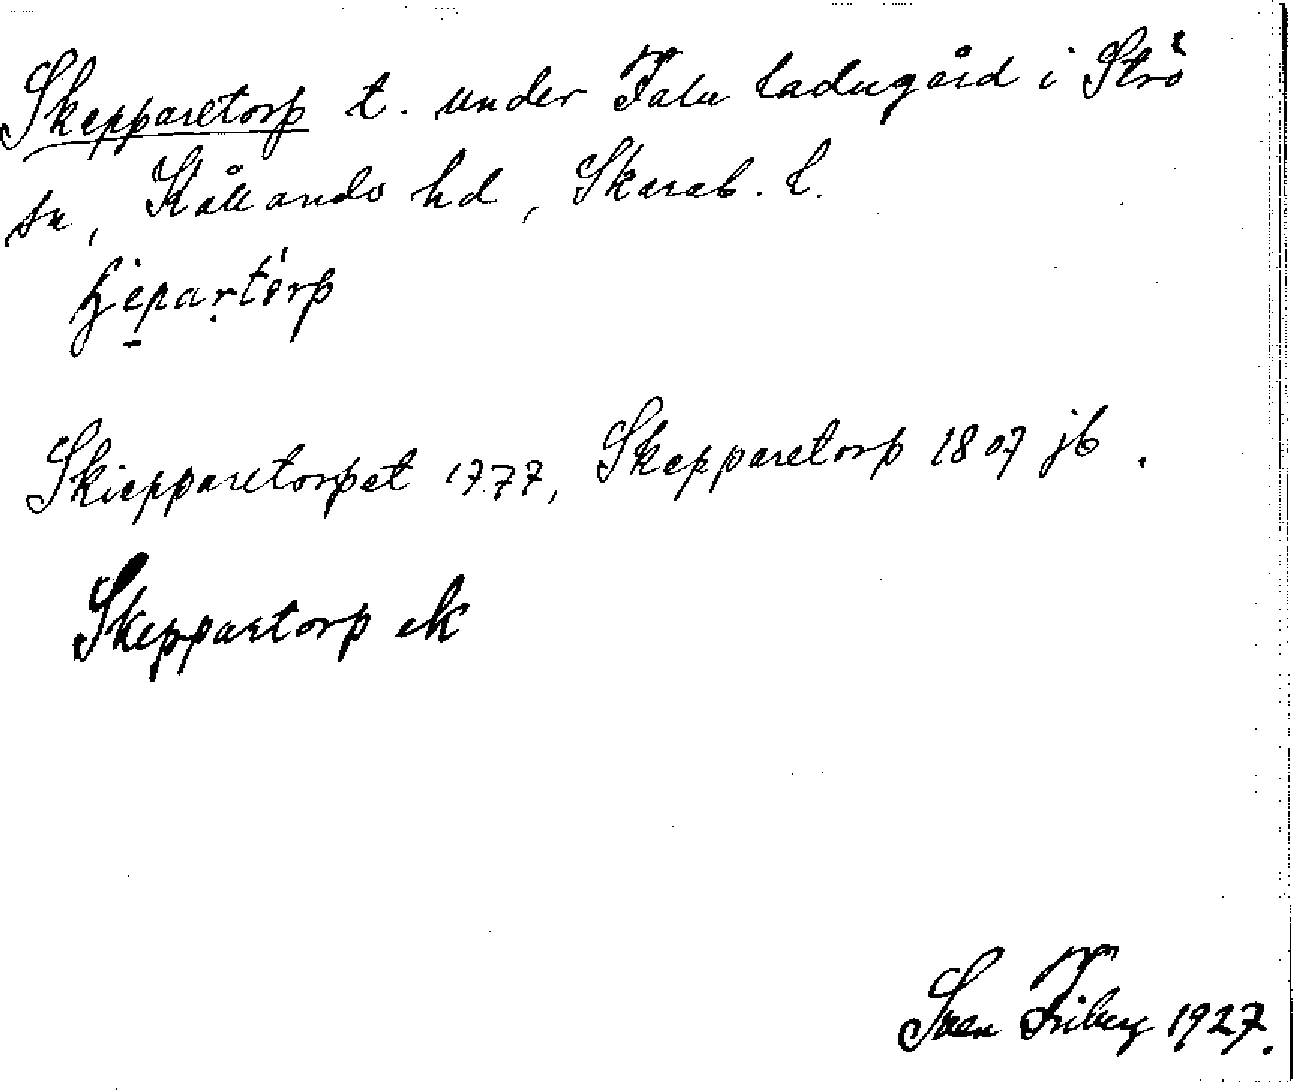 Skepparetorp t. under Fala ladugård i Strö
sn, Kållands hd, Skarab. l.
Skiepparetorpet 1777, Skepparetorp 1807 jb.
Skeppartorp ek
Sven Friberg 1927.